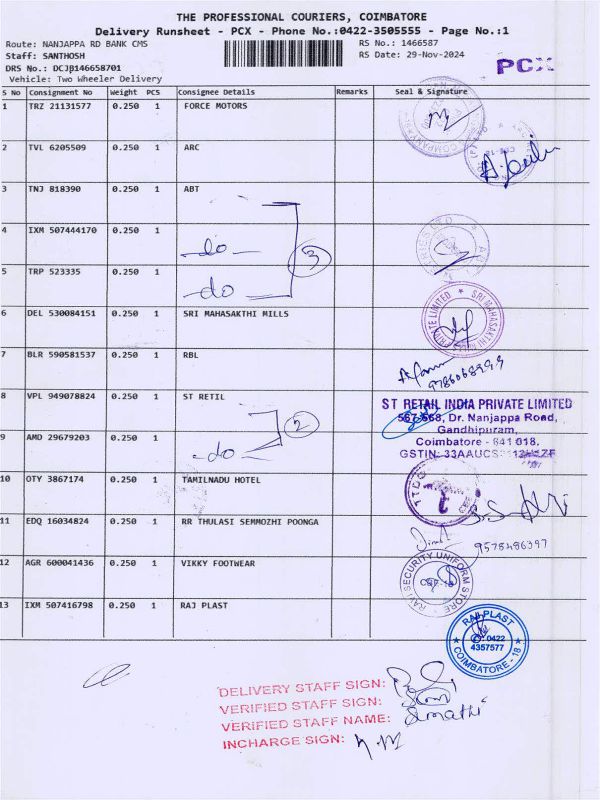 THE PROFESSIONAL COURIERS, COIMBATORE
Delivery Runsheet - PCX - Phone No.:0422-3505555 - Page No.:1
Route: NANJAPPA RD BANK CMS RS No.: 1466587
Staff: SANTHOSH RS Date: 29-Nov-2024
DRS No.: DCJB146658701
Vehicle: Two Wheeler Delivery
PCX
S No Consignment No Weight PCS Consignee Details Remarks Seal & Signature
1 TRZ 21131577 0.250 1 FORCE MOTORS
2 TVL 6205509 0.250 1 ARC
3 TNJ 818390 0.250 1 ABT
4 IXM 507444170 0.250 1 -do-
3
5 TRP 523335 0.250 1 -do-
6 DEL 530084151 0.250 1 SRI MAHASAKTHI MILLS
PRIVATE LIMITED * SRI MAHASAKTHI
7 BLR 590581537 0.250 1 RBL
8 VPL 949078824 0.250 1 ST RETIL
2
ST RETAIL INDIA PRIVATE LIMITED
567-568, Dr. Nanjappa Road,
Gandhipuram,
Coimbatore - 641 018.
GSTIN: 33AAUCS
9 AMD 29679203 0.250 1 -do-
10 OTY 3867174 0.250 1 TAMILNADU HOTEL
TTDC
11 EDQ 16034824 0.250 1 RR THULASI SEMMOZHI POONGA
9578486397
12 AGR 600041436 0.250 1 VIKKY FOOTWEAR
RAVI SECURITY UNIFORM STORE
CBE-18
13 IXM 507416798 0.250 1 RAJ PLAST
RAJ PLAST
0422
4357577
COIMBATORE - 18
DELIVERY STAFF SIGN:
VERIFIED STAFF SIGN:
VERIFIED STAFF NAME: Sumathi
INCHARGE SIGN: